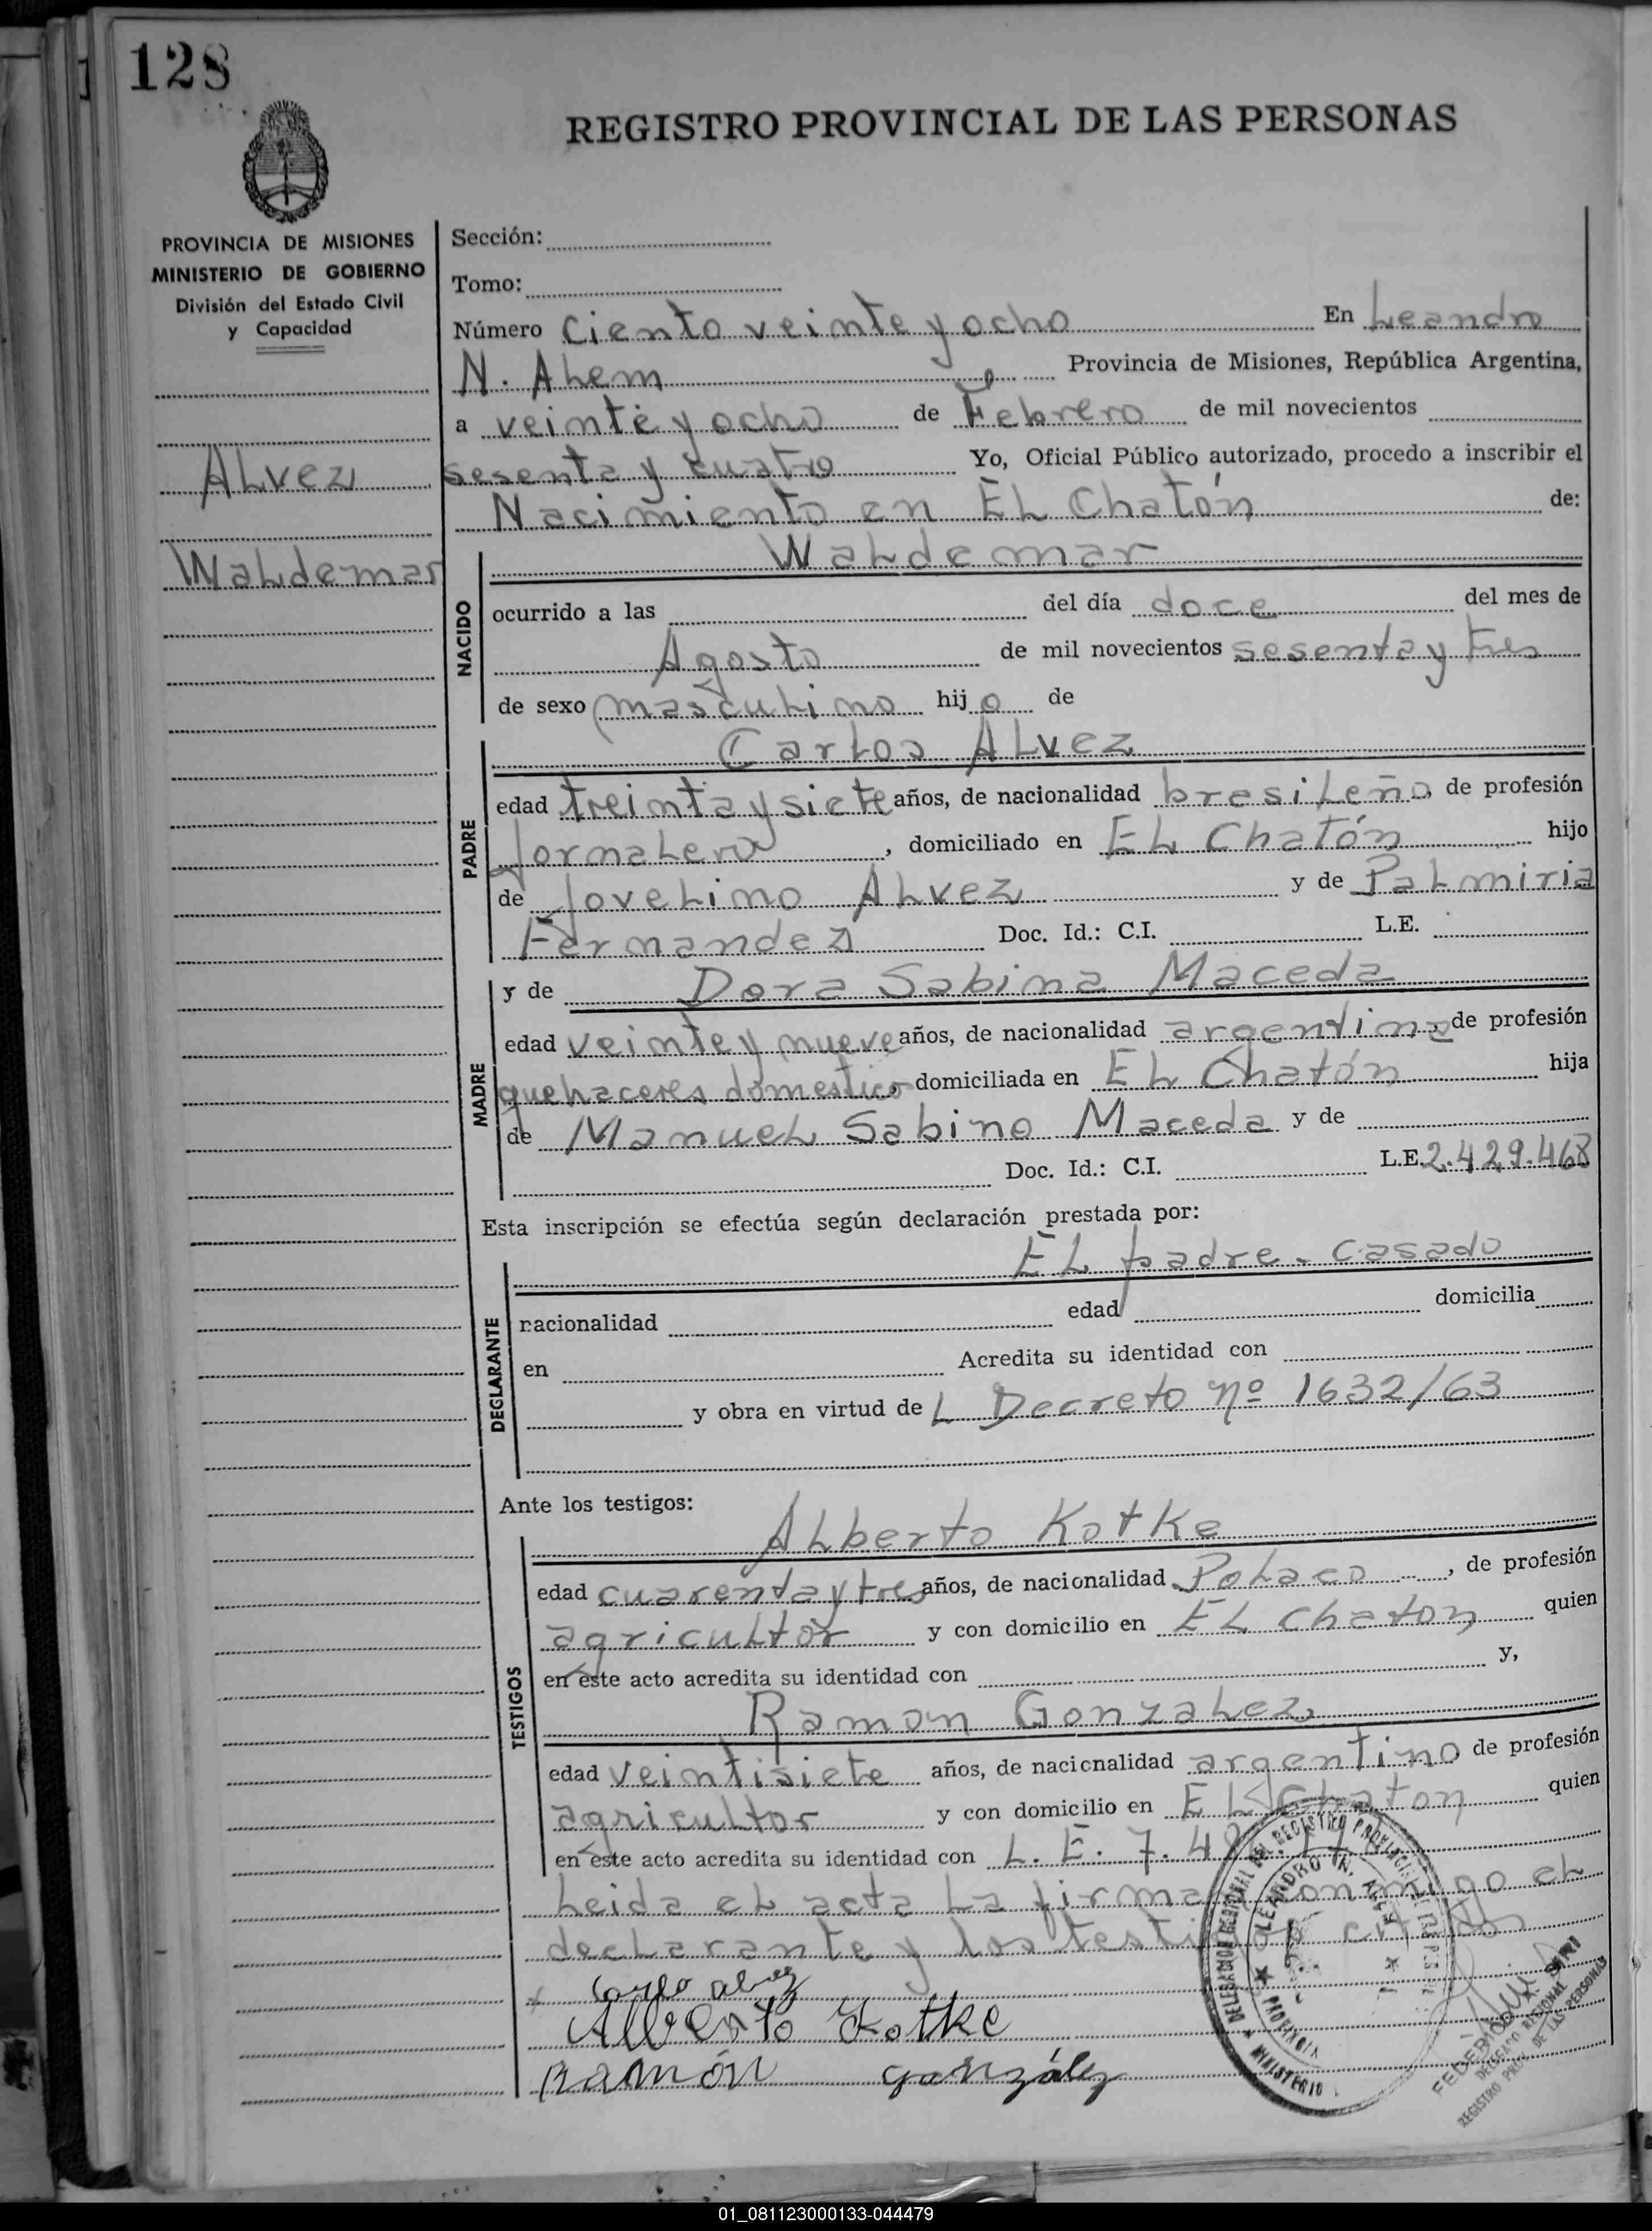 128
REGISTRO PROVINCIAL DE LAS PERSONAS
PROVINCIA DE MISIONES
MINISTERIO DE GOBIERNO
División del Estado Civil
y Capacidad
Alvez
Waldemar
Sección:
Tomo:
Número Ciento veinte y ocho En Leandro
N. Alem Provincia de Misiones, República Argentina,
a veinte y ocho de Febrero de mil novecientos
sesenta y cuatro Yo, Oficial Público autorizado, procedo a inscribir el
Nacimiento en El Chatón de:
Waldemar
NACIDO
ocurrido a las del día doce del mes de
Agosto de mil novecientos sesenta y tres
de sexo masculino hijo de
Carlos Alvez
PADRE
edad treinta y siete años, de nacionalidad bresileño, de profesión
Jornalero, domiciliado en El Chatón hijo
de Jovelino Alvez y de Palmiria
Fernandez Doc. Id.: C.I. L.E.
y de Dora Sabina Maceda
MADRE
edad veinte y nueve años, de nacionalidad argentina, de profesión
quehaceres domestico domiciliada en El Chatón hija
de Manuel Sabino Maceda y de
Doc. Id.: C.I. L.E. 2.429.468
Esta inscripción se efectúa según declaración prestada por:
El padre. casado
DECLARANTE
nacionalidad edad domicilia
en Acredita su identidad con
y obra en virtud del Decreto nº 1632/63
Ante los testigos:
Alberto Kotke
TESTIGOS
edad cuarenta y tres años, de nacionalidad Polaco, de profesión
agricultor y con domicilio en El Chaton quien
en este acto acredita su identidad con y,
Ramon Gonzalez
edad veintisiete años, de nacionalidad argentino de profesión
agricultor y con domicilio en El Chaton quien
en este acto acredita su identidad con L. E. 7.48
Leida el acta la firman conmigo el
declarante y los testigos citados
x Carlo alvez
Alberto Kotke
Ramón gonzález
DELEGACION REGIONAL DEL REGISTRO PROVINCIAL DE LAS PERSONAS
LEANDRO N. ALEM
PROVINCIA
MINISTERIO
DELEGADO REGIONAL
REGISTRO PROV. DE LAS PERSONAS
01_081123000133-044479